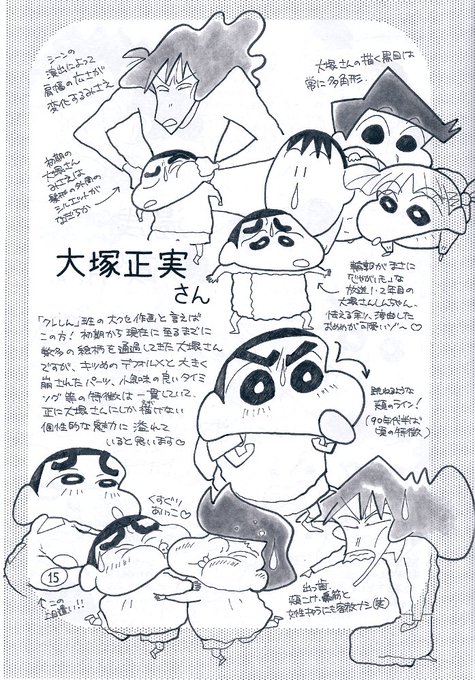 シーンの
演出によって
肩幅の広さが
変化するみさえ
大塚さんの描く黒目は
常に多角形.
初期の
大塚さん
みさえは
髪の外周の
シルエットが
なだらか
大塚正実
さん
輪郭がまさに
「じゃがいも」な
放送1・2年目の
大塚さんしんちゃん。
怯える余り、湾曲した
おめめが可愛い♡
「クレしん」班の大クセ作画と言えば
この方!初期から現在に至るまでに
数多の絵柄を通過してきた大塚さん
ですが、キツめのデフォルメと大きく
崩されたパーツ、小気味の良いタイミ
ング等の特徴は一貫していて、
正に大塚さんにしか描けない
個性的な魅力に溢れて
いると思います♡
跳ねるような
頬のライン!
(90年代半ば
頃の特徴)
くすぐり
あいっこ♡
15
↑この
上目遣い!!
出っ歯
頬こけ・鼻筋と
女性キャラにも容赦ナシ(笑)